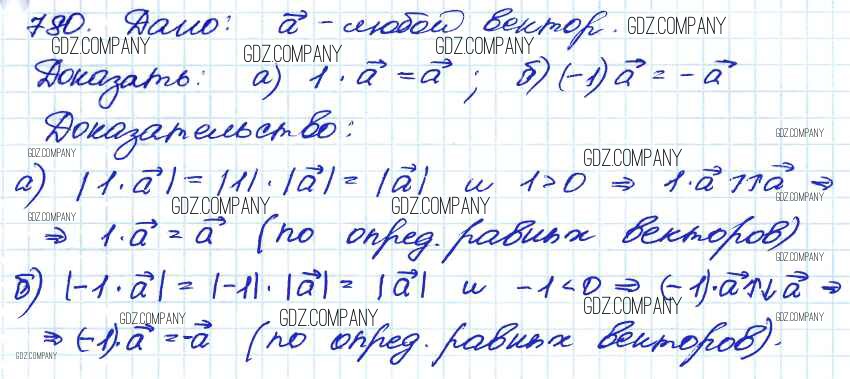 780. Дано: a⃗ – любой вектор. GDZ.COMPANY
GDZ.COMPANY GDZ.COMPANY GDZ.COMPANY
Доказать: а) 1 · a⃗ = a⃗ ; б) (-1) a⃗ = - a⃗
Доказательство:
GDZ.COMPANY GDZ.COMPANY GDZ.COMPANY
а) |1 · a⃗| = |1| · |a⃗| = |a⃗| и 1 > 0 ⇒ 1 · a⃗ ↑↑ a⃗ ⇒
GDZ.COMPANY GDZ.COMPANY GDZ.COMPANY GDZ.COMPANY
⇒ 1 · a⃗ = a⃗ (по опред. равных векторов)
GDZ.COMPANY
б) |-1 · a⃗| = |-1| · |a⃗| = |a⃗| и -1 < 0 ⇒ (-1) · a⃗ ↑↓ a⃗ ⇒
GDZ.COMPANY GDZ.COMPANY GDZ.COMPANY GDZ.COMPANY
⇒ (-1) · a⃗ = -a⃗ (по опред. равных векторов).
GDZ.COMPANY